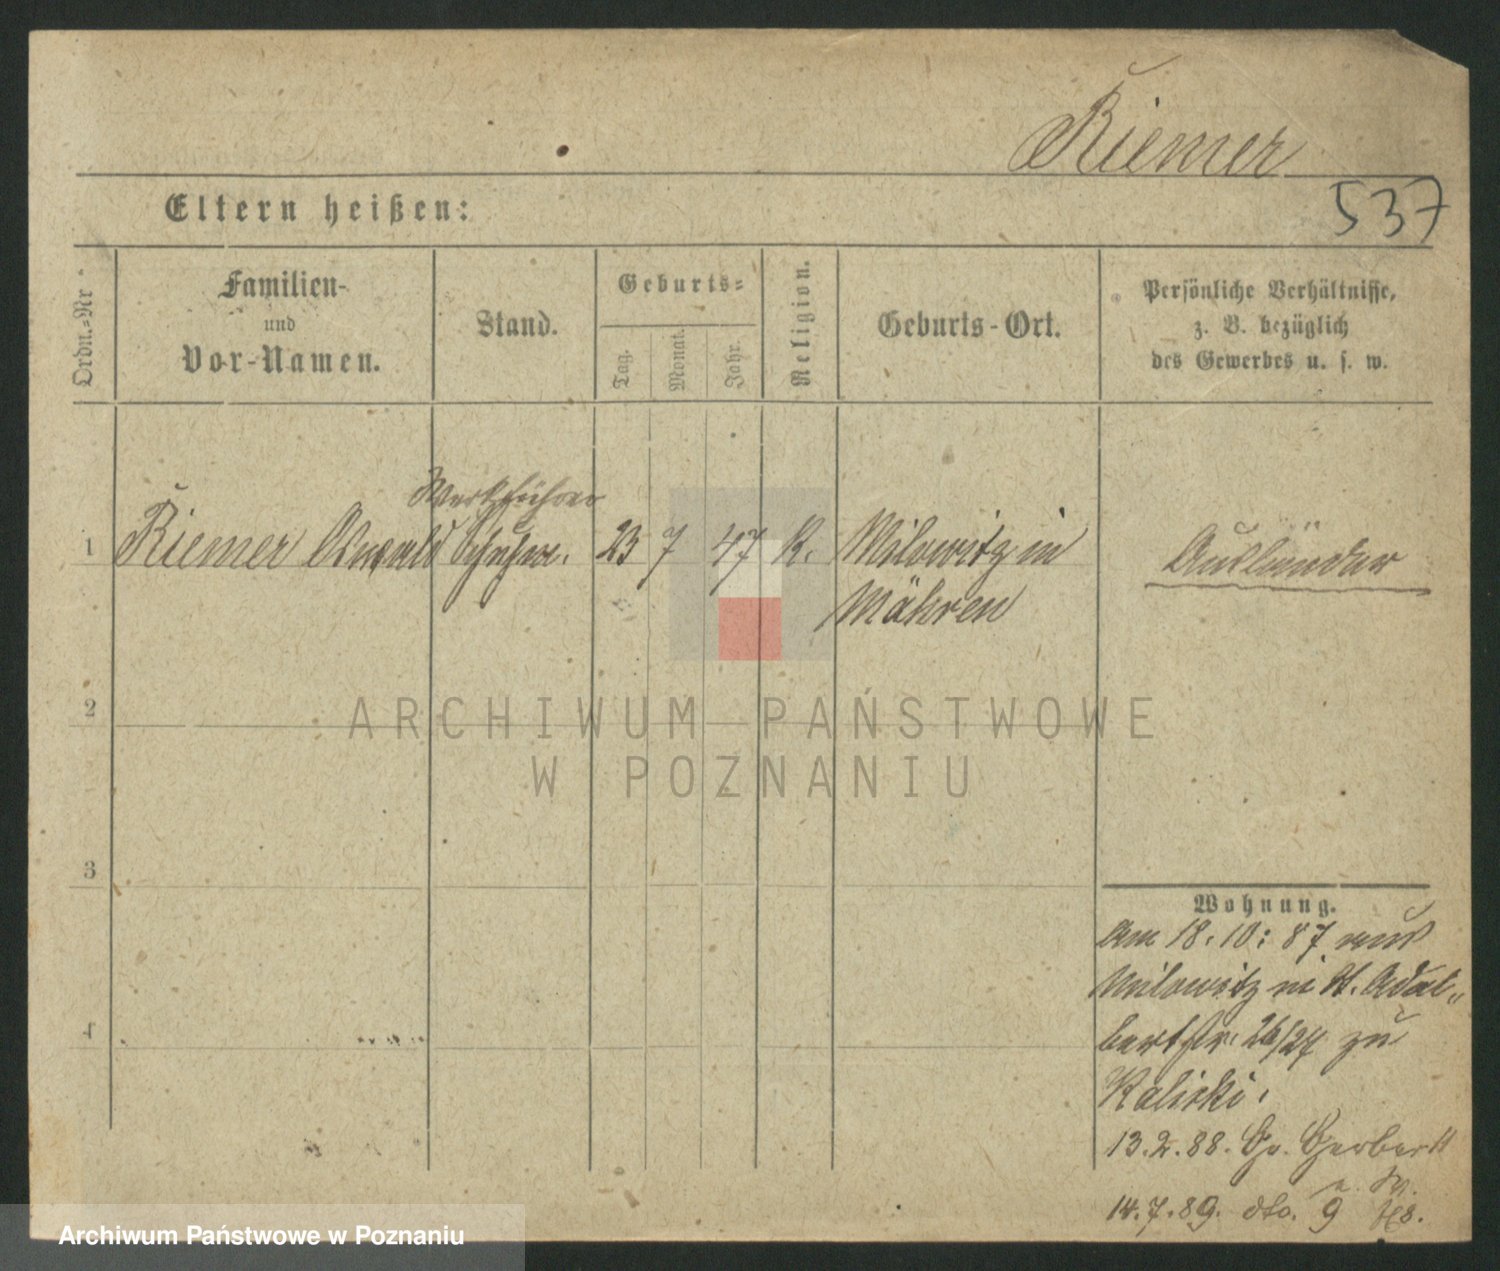 Riemer
537
Eltern heißen:
Ordn.-Nr
Familien-
und
Vor-Namen.
Stand.
Geburts-
Tag.
Monat.
Jahr.
Religion.
Geburts-Ort.
Persönliche Verhältnisse,
z. B. bezüglich
des Gewerbes u. s. w.
Werkführer
1 Riemer Oswald Schuhm. 23 7 47 K. Milowitz in Ausländer
Mähren
2
ARCHIWUM PAŃSTWOWE
W POZNANIU
3
Wohnung.
Am 18.10.87 aus
Milowitz in St. Adal-
4 bertstr. 26/27 zu
Kaliski.
13.2.88. Gr. Gerber
14.7.89. dto. 9
Archiwum Państwowe w Poznaniu